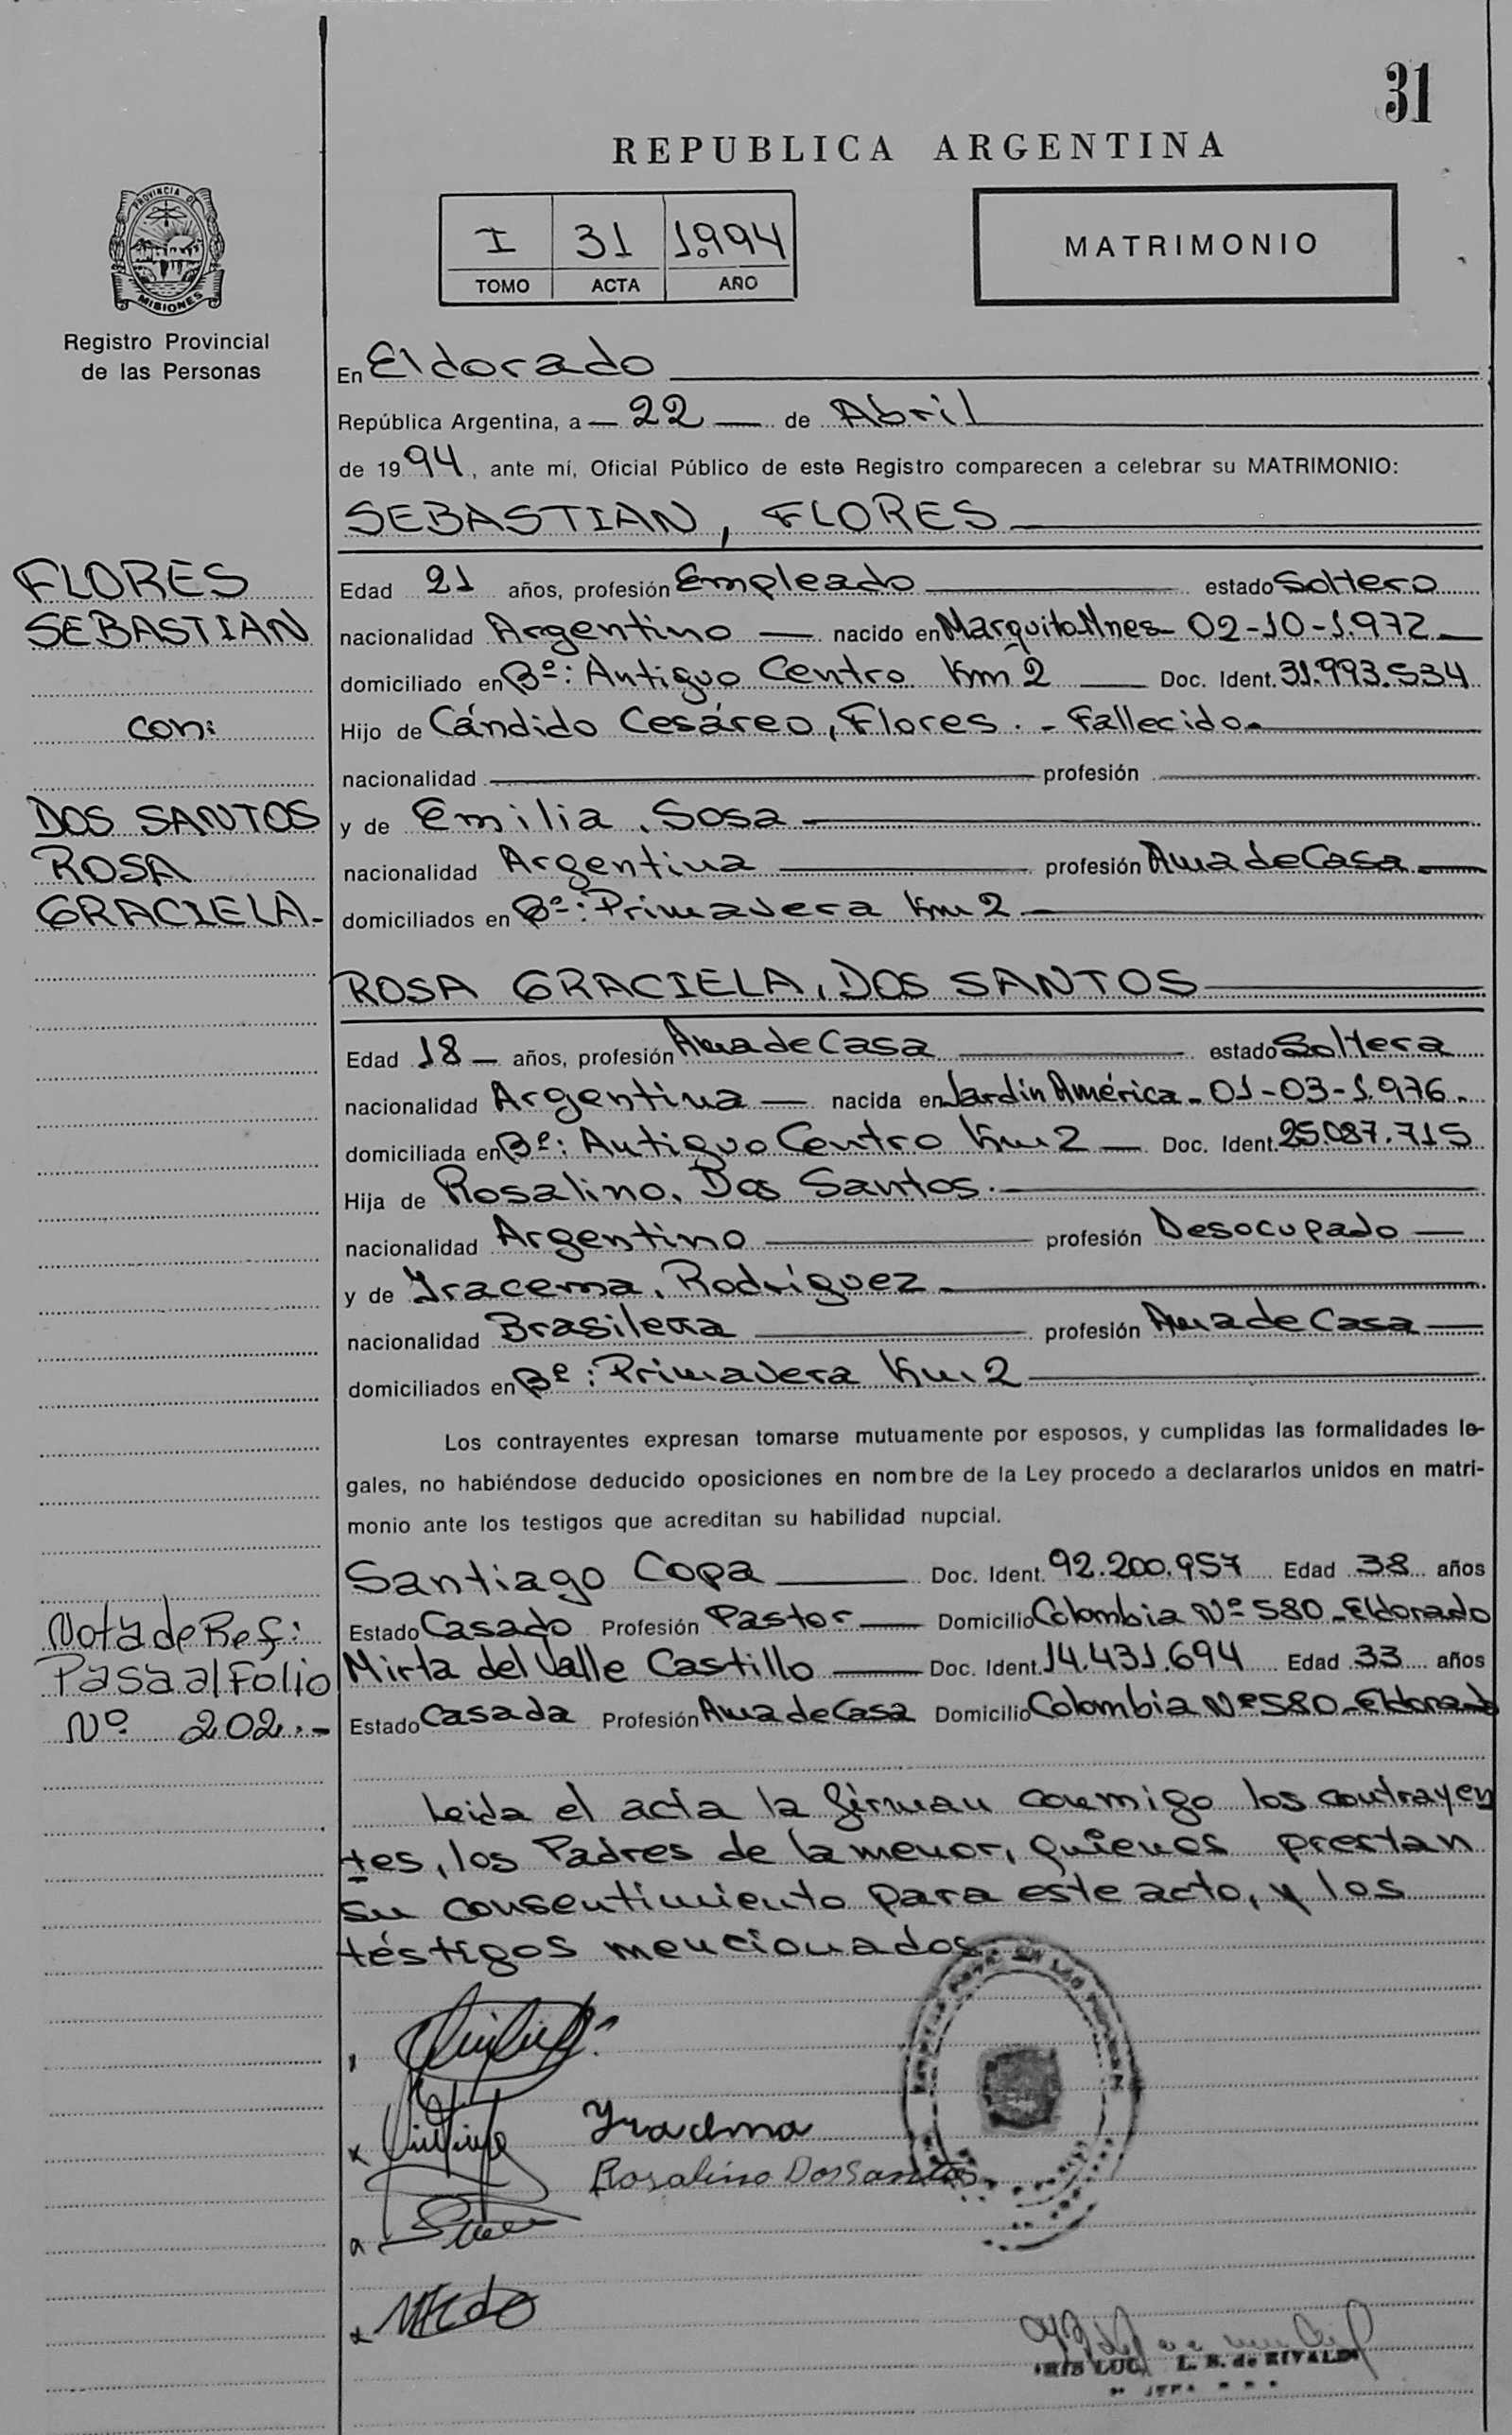 31
REPUBLICA ARGENTINA
PROVINCIA DE
MISIONES
Registro Provincial
de las Personas
I 31 1.994
TOMO ACTA AÑO
MATRIMONIO
En Eldorado
República Argentina, a 22 de Abril
de 1994, ante mí, Oficial Público de este Registro comparecen a celebrar su MATRIMONIO:
SEBASTIAN, FLORES
FLORES
SEBASTIAN
con:
DOS SANTOS
ROSA
GRACIELA.-
Edad 21 años, profesión Empleado estado Soltero
nacionalidad Argentino nacido en Marquito Mnes- 02-10-1.972
domiciliado en Bº: Antiguo Centro Km 2 Doc. Ident. 31.993.534
Hijo de Cándido Cesáreo, Flores.- Fallecido-
nacionalidad profesión
y de Emilia, Sosa
nacionalidad Argentina profesión Ama de Casa
domiciliados en Bº: Primavera Km 2
ROSA GRACIELA, DOS SANTOS
Edad 18 años, profesión Ama de Casa estado Soltera
nacionalidad Argentina nacida en Jardín América - 01-03-1.976.
domiciliada en Bº: Antiguo Centro Km 2 Doc. Ident. 25.087.715
Hija de Rosalino, Dos Santos.
nacionalidad Argentino profesión Desocupado
y de Iracema, Rodríguez
nacionalidad Brasilera profesión Ama de Casa
domiciliados en Bº: Primavera Km 2
Los contrayentes expresan tomarse mutuamente por esposos, y cumplidas las formalidades le-
gales, no habiéndose deducido oposiciones en nombre de la Ley procedo a declararlos unidos en matri-
monio ante los testigos que acreditan su habilidad nupcial.
Santiago Copa Doc. Ident. 92.200.957 Edad 38 años
Estado Casado Profesión Pastor Domicilio Colombia Nº 580 - Eldorado
Mirta del Valle Castillo Doc. Ident. 14.431.694 Edad 33 años
Estado Casada Profesión Ama de Casa Domicilio Colombia Nº 580 - Eldorado
Nota de Ref:
Pasa al Folio
Nº 202.-
Leída el acta la firman conmigo los contrayen
tes, los Padres de la menor, quienes prestan
su consentimiento para este acto, y los
testigos mencionados.
Iracema
Rosalino Dos Santos
L. B. de RIVALDI
JEFA